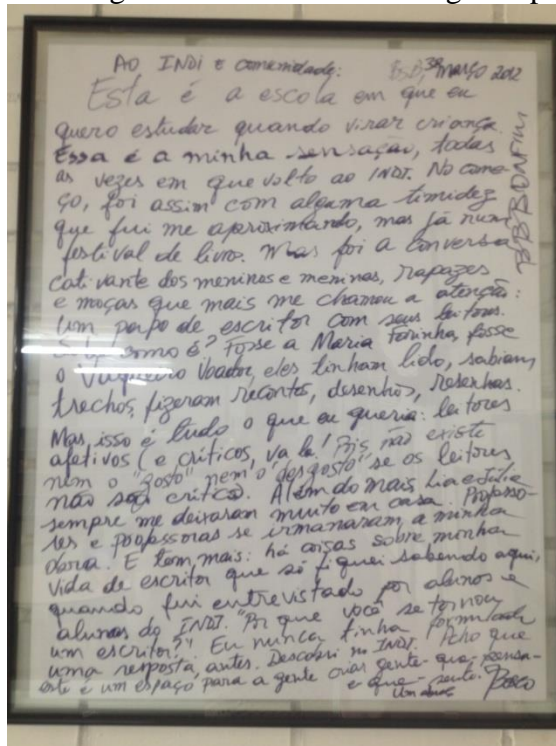 AO INDI e comunidade: BsB, 3 março 2012
Esta é a escola em que eu
quero estudar quando virar criança.
Essa é a minha sensação, todas
as vezes em que volto ao INDI. No come-
ço, foi assim com alguma timidez
que fui me aproximando, mas já num
festival de livro. Mas foi a conversa
cativante dos meninos e meninas, rapazes
e moças que mais me chamou a atenção:
um papo de escritor com seus leitores.
Sabe como é? Fosse a Maria Farinha, fosse
o Vaqueiro Voador, eles tinham lido, sabiam
trechos, fizeram recortes, desenhos, resenhas.
Mas, isso é tudo o que eu queria: leitores
afetivos (e críticos, va lá! Pois, não existe
nem o "gosto" nem o "desgosto" se os leitores
não são críticos. Além do mais, Lia e Júlia
sempre me deixaram muito em casa. Professo-
res e professoras se irmanaram, a minha
obra. E tem mais: há coisas sobre minha
vida de escritor que só fiquei sabendo aqui,
quando fui entrevistado por alunos e
alunas do INDI. "Por que você se tornou
um escritor?" Eu nunca tinha formulado
uma resposta, antes. Descobri no INDI. Acho que
este é um espaço para a gente criar gente-que-pensa-
e que-sente.
Um abraço Bosco
BBBONFIM